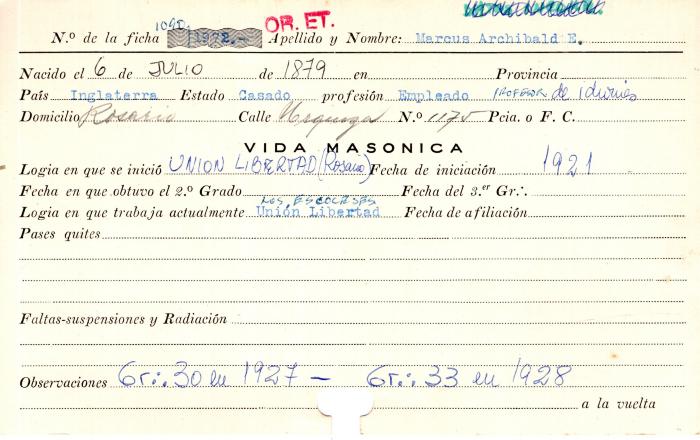 OR. ET.
N.º de la ficha 1090.- Apellido y Nombre: Marcus Archibald E.
Nacido el 6 de JULIO de 1879 en Provincia
País Inglaterra Estado Casado profesión Empleado PROFESOR de idiomas
Domicilio Rosario Calle Urquiza N.º 1175 Pcia. o F. C.
VIDA MASONICA
Logia en que se inició UNION LIBERTAD (Rosario) Fecha de iniciación 1921
Fecha en que obtuvo el 2.º Grado Fecha del 3.er Gr∴
LOS ESCOCESES
Logia en que trabaja actualmente Unión Libertad Fecha de afiliación
Pases quites
Faltas-suspensiones y Radiación
Observaciones Gr∴ 30 en 1927 — Gr∴ 33 en 1928
a la vuelta